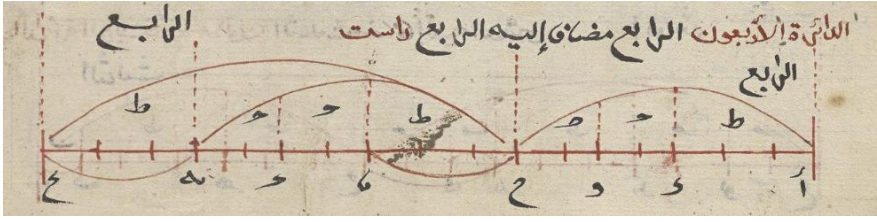 الدائرة الأربعون الرابع مضاف إليه الرابع راست
الرابع
الرابع
ط ط ط
أ و ح يه يح